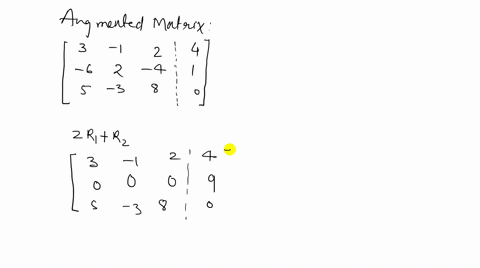 Augmented Matrix:
3 -1 2 4
-6 2 -4 1
5 -3 8 0
2R₁+R₂
3 -1 2 4
0 0 0 9
5 -3 8 0